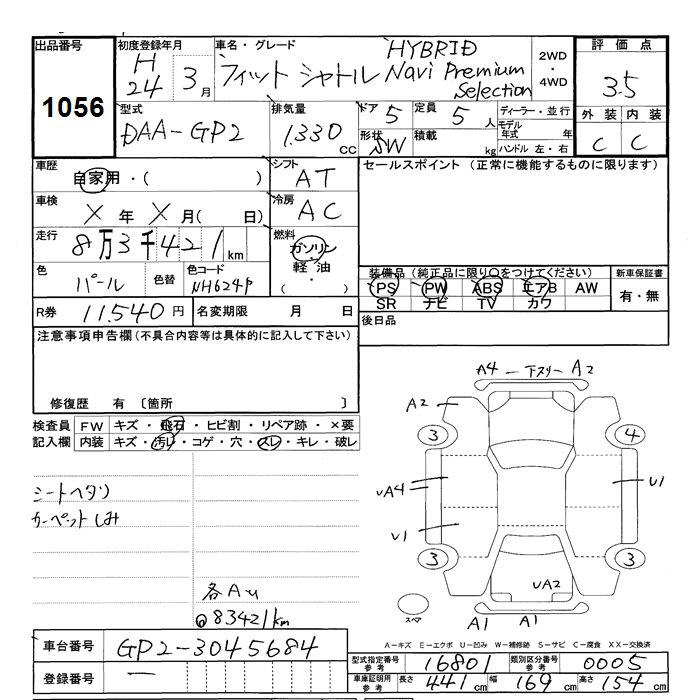 出品番号
1056
初度登録年月
H
24 3月
車名・グレード
フィット シャトル
HYBRID
Navi Premium
Selection
2WD
・
4WD
評価点
3.5
外装 内装
C C
型式
DAA-GP2
排気量
1.330 CC
ドア 5
定員 5人
形状 SW
積載 kg
ディーラー・並行
モデル年式 年
ハンドル 左・右
車歴
自家用・( )
シフト AT
車検
X年 X月( 日)
冷房 AC
走行
8万3千421km
燃料
ガソリン
・
軽油・
( )
色
パール
色替
色コード
NH624P
R券 11,540円
名変期限 月 日
セールスポイント(正常に機能するものに限ります)
装備品(純正品に限り〇をつけてください)
PS PW ABS エアB AW
SR ナビ TV カワ
新車保証書
有・無
後日品
注意事項申告欄(不具合内容等は具体的に記入して下さい)
修復歴 有 〔箇所 〕
検査員
記入欄
FW キズ・飛石・ヒビ割・リペア跡・×要
内装 キズ・汚レ・コゲ・穴・スレ・キレ・破レ
シートヘタリ
カーペットしみ
各AU
@83421km
A4 - 下スリ - A2
A2
3 4
UA4 U1
U1
3 3
UA2
スペア
A1 A1
A-キズ E-エクボ U-凹み W-補修跡 S-サビ C-腐食 XX-交換済
車台番号 GP2-3045684
登録番号 —
型式指定番号参考 16801
類別区分番号参考 0005
車庫証明用参考 長さ 441cm 幅 169cm 高さ 154cm